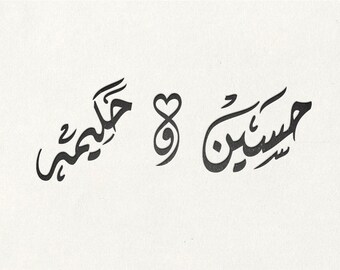 حسين و حليمه